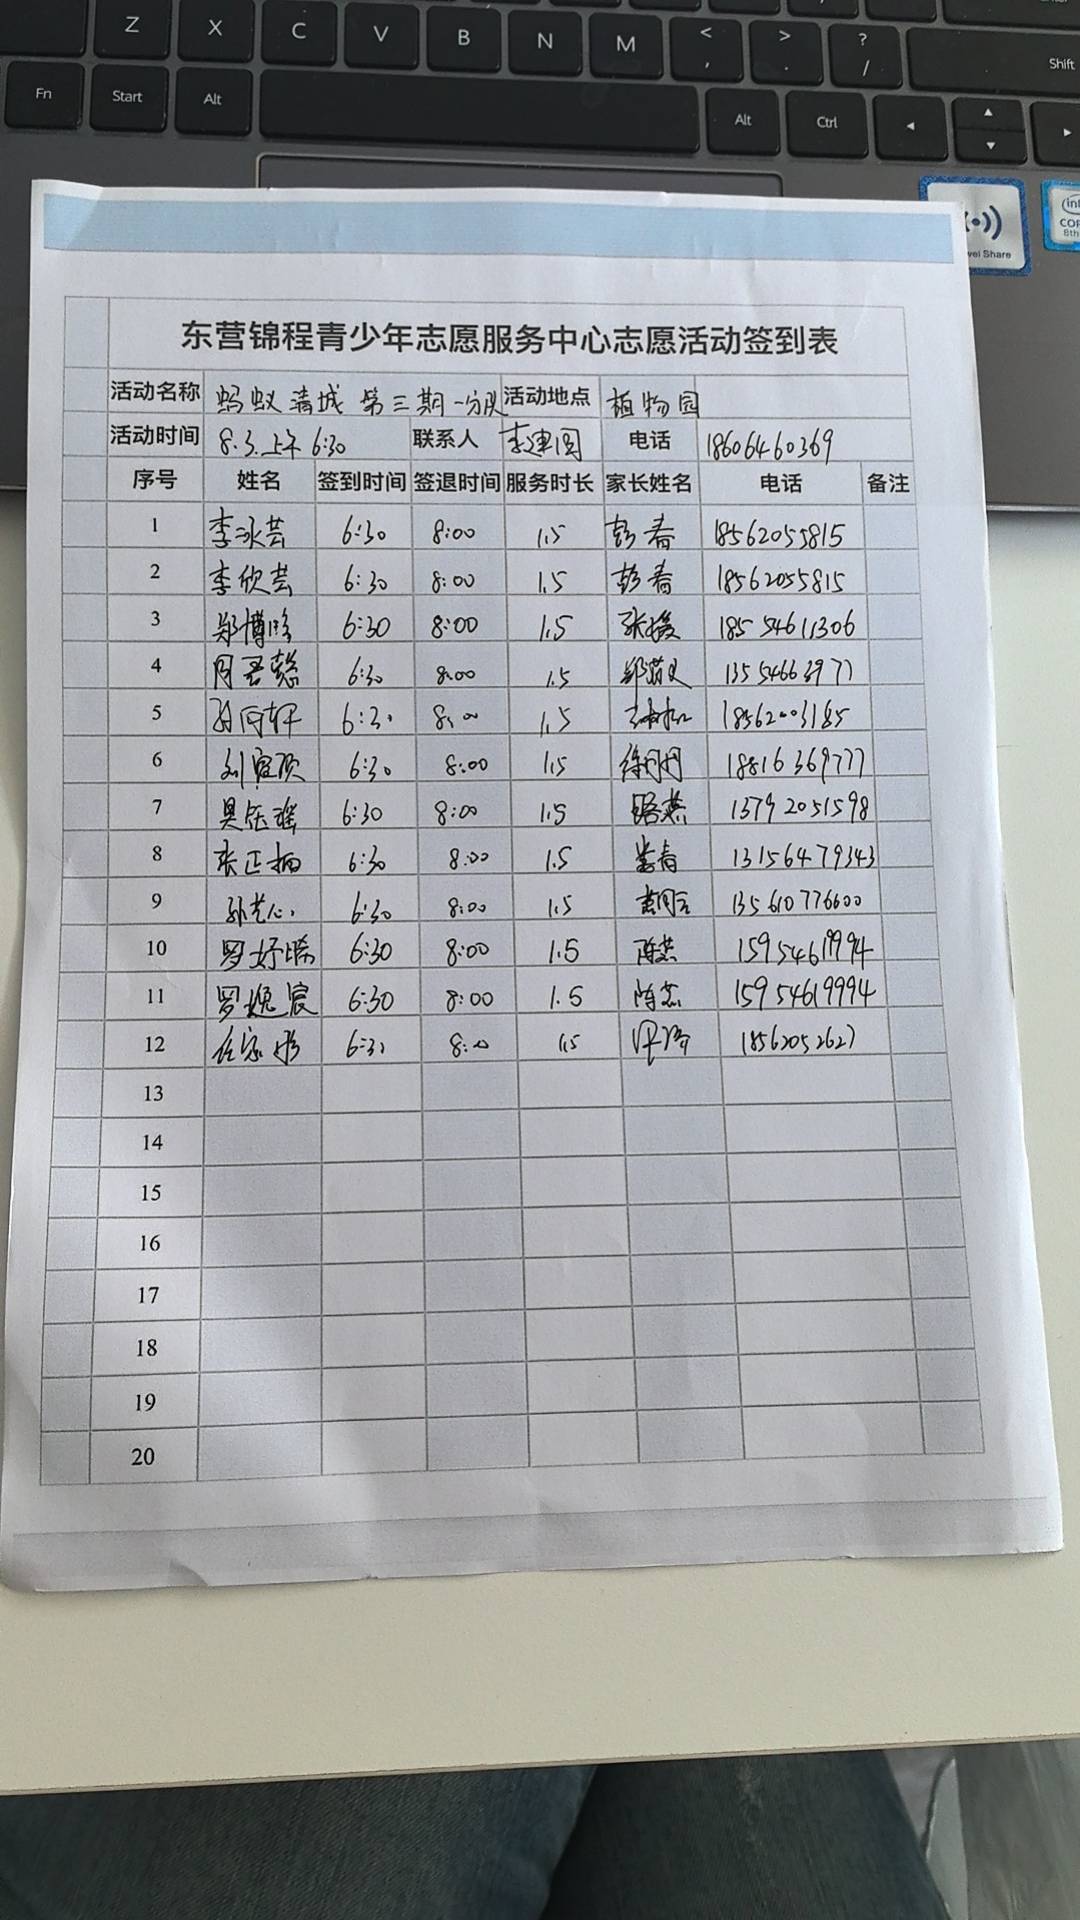 Z X C V B N M < , > . ? / Shift
Fn Start Alt Alt Ctrl
Share
东营锦程青少年志愿服务中心志愿活动签到表
活动名称 蚂蚁清城 第三期-分队 活动地点 植物园
活动时间 8.3.上午 6:30 联系人 李建国 电话 18606460369
序号 姓名 签到时间 签退时间 服务时长 家长姓名 电话 备注
1 李泳芸 6:30 8:00 1.5 彭春 18562055815
2 李欣芸 6:30 8:00 1.5 彭春 18562055815
3 郑博 6:30 8:00 1.5 张媛 18554611306
4 6:30 8:00 1.5 13554663977
5 6:30 8:00 1.5 18562003185
6 6:30 8:00 1.5 徐丹丹 18816369777
7 6:30 8:00 1.5 路燕 13792051598
8 张正 6:30 8:00 1.5 13156479343
9 孙艺心 6:30 8:00 1.5 135610776600
10 罗妤 6:30 8:00 1.5 陈燕 15954619994
11 罗逸宸 6:30 8:00 1.5 陈燕 15954619994
12 6:30 8:00 1.5 18562052627
13
14
15
16
17
18
19
20